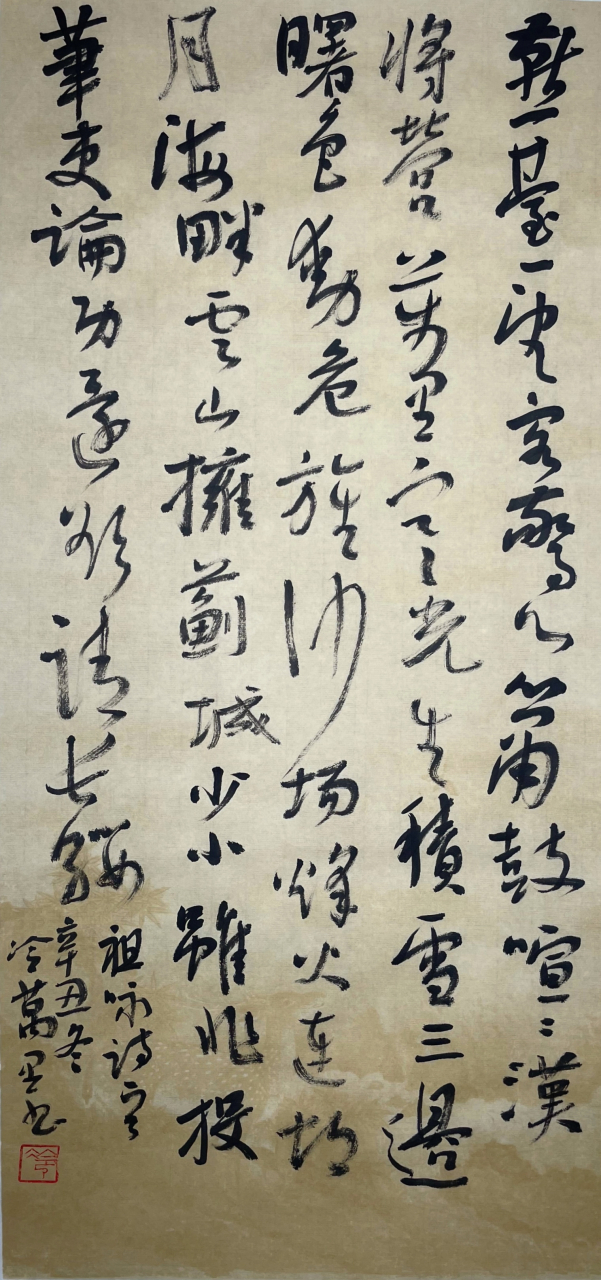 燕臺一望客驚心簫鼓喧〻漢
將營萬里寒光生積雪三邊
曙色動危旌沙場烽火連胡
月海畔雲山擁薊城少小雖非投
筆吏論功還欲請長纓
祖咏詩
辛丑冬
冷萬里書